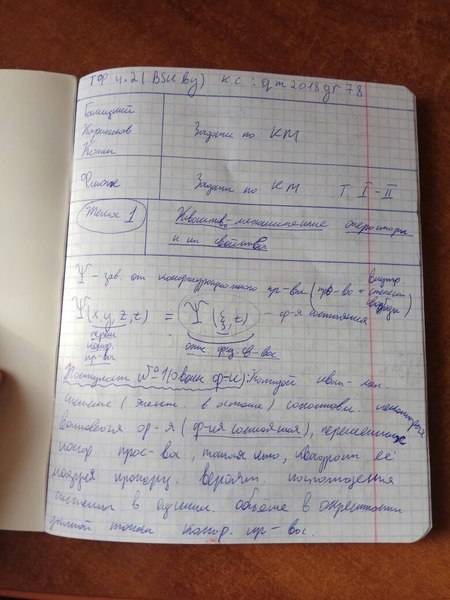 ТФ ч.2 (BSU by) к с : qm2018gr78
Галицкий
Карнаков
Коган
Задачи по КМ
Флюгге
Задачи по КМ Т. I - II
Тема 1
Квантово-механические операторы
и их свойства
Ψ - зав. от конфигурационного пр-ва (пр-во + внутр. степени свободы)
Ψ(x, y, z, t) = Ψ(ξ, t) - ф-я состояния
конф.
пр-ва
опис. физ. св-ва
Постулат №1 (о волн. ф-и): Каждой квант. - мех.
системе (в остальн.) сопоставл. некоторая
волновая ф-я (ф-ия состояния), переменных
конф. прос-ва, такая что, квадрат её
модуля пропорц. вероятн. нахождения
системы в единич. объёме в окрестности
данной точки конф. пр-ва.